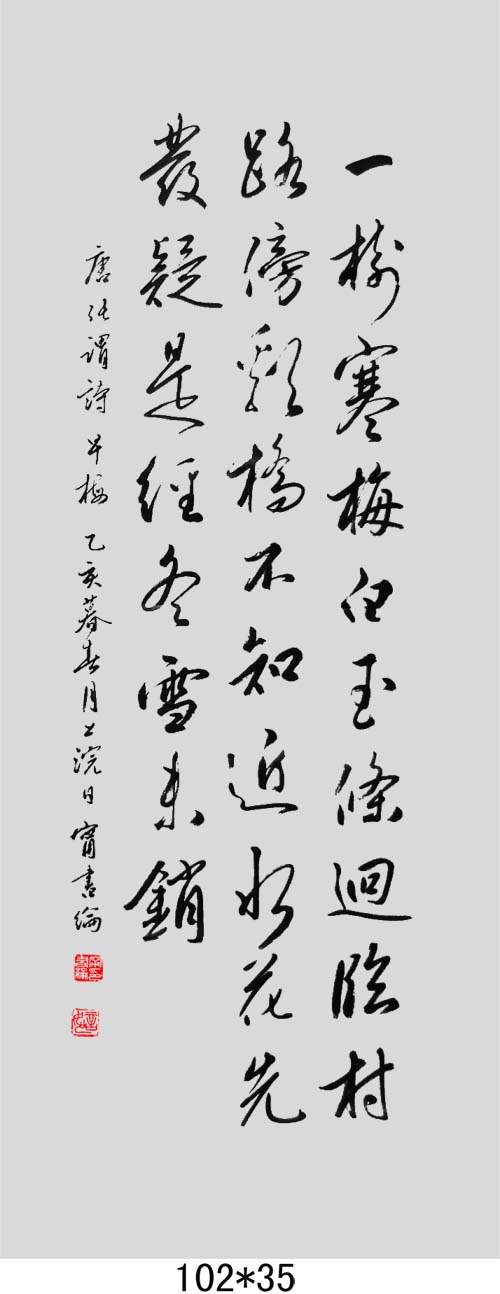 一樹寒梅白玉條迥臨村
路傍谿橋不知近水花先
發疑是經冬雪未銷
唐張謂詩早梅乙亥暮春月上浣日甯書綸
102*35